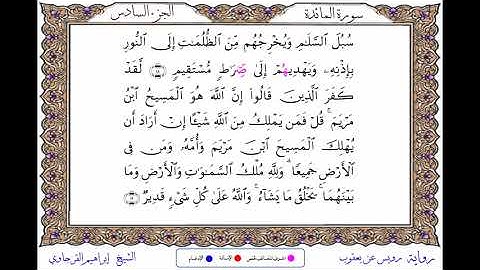 سورة المائدة
الجزء السادس
سُبُلَ ٱلسَّلَٰمِ وَيُخْرِجُهُم مِّنَ ٱلظُّلُمَٰتِ إِلَى ٱلنُّورِ
بِإِذْنِهِۦ وَيَهْدِيهُمْ إِلَىٰ سِرَٰطٍ مُّسْتَقِيمٍ لَّقَدْ
كَفَرَ ٱلَّذِينَ قَالُوٓا۟ إِنَّ ٱللَّهَ هُوَ ٱلْمَسِيحُ ٱبْنُ
مَرْيَمَ ۚ قُلْ فَمَن يَمْلِكُ مِنَ ٱللَّهِ شَيْـًٔا إِنْ أَرَادَ أَن
يُهْلِكَ ٱلْمَسِيحَ ٱبْنَ مَرْيَمَ وَأُمَّهُۥ وَمَن فِى
ٱلْأَرْضِ جَمِيعًا ۗ وَلِلَّهِ مُلْكُ ٱلسَّمَٰوَٰتِ وَٱلْأَرْضِ وَمَا
بَيْنَهُمَا ۚ يَخْلُقُ مَا يَشَآءُ ۚ وَٱللَّهُ عَلَىٰ كُلِّ شَىْءٍ قَدِيرٌ
رواية رويس عن يعقوب
الإمالة
الإدغام
الشيخ إبراهيم الفرجاوي